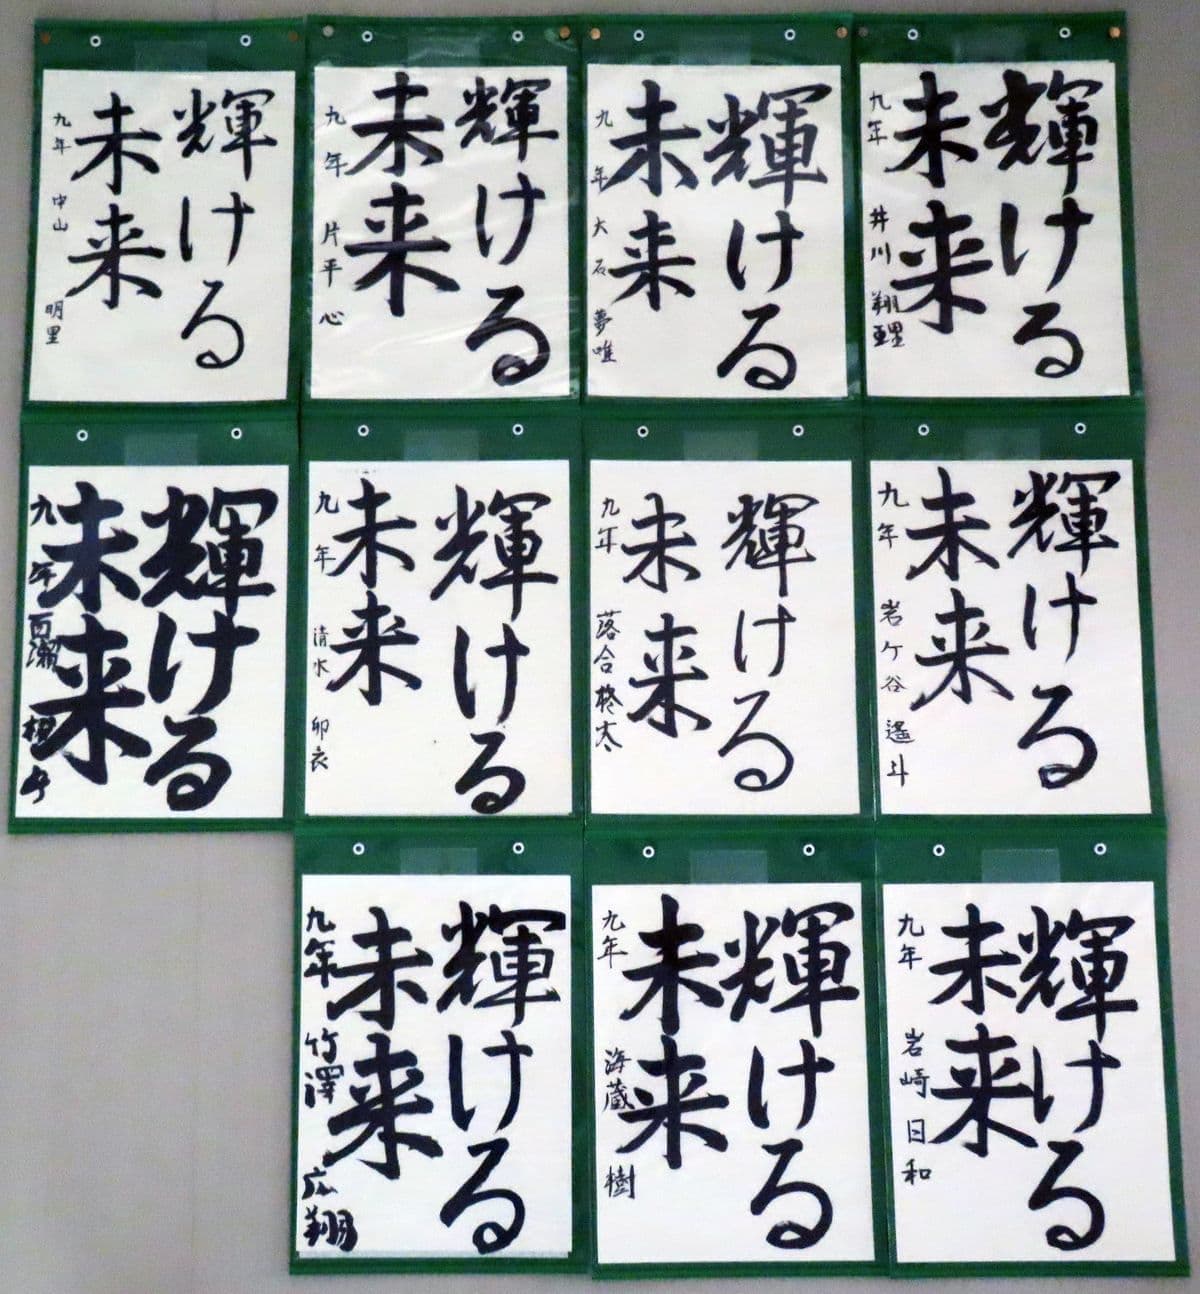 輝ける
未来
九年 中山 明里
輝ける
未来
九年 片平 心
輝ける
未来
九年 大石 夢唯
輝ける
未来
九年 井川 翔
輝ける
未来
九年 百瀬
輝ける
未来
九年 清水 卯衣
輝ける
未来
九年 落合 柊太
輝ける
未来
九年 岩ケ谷 遥斗
輝ける
未来
九年 竹澤 広翔
輝ける
未来
九年 海蔵 樹
輝ける
未来
九年 岩崎 日和